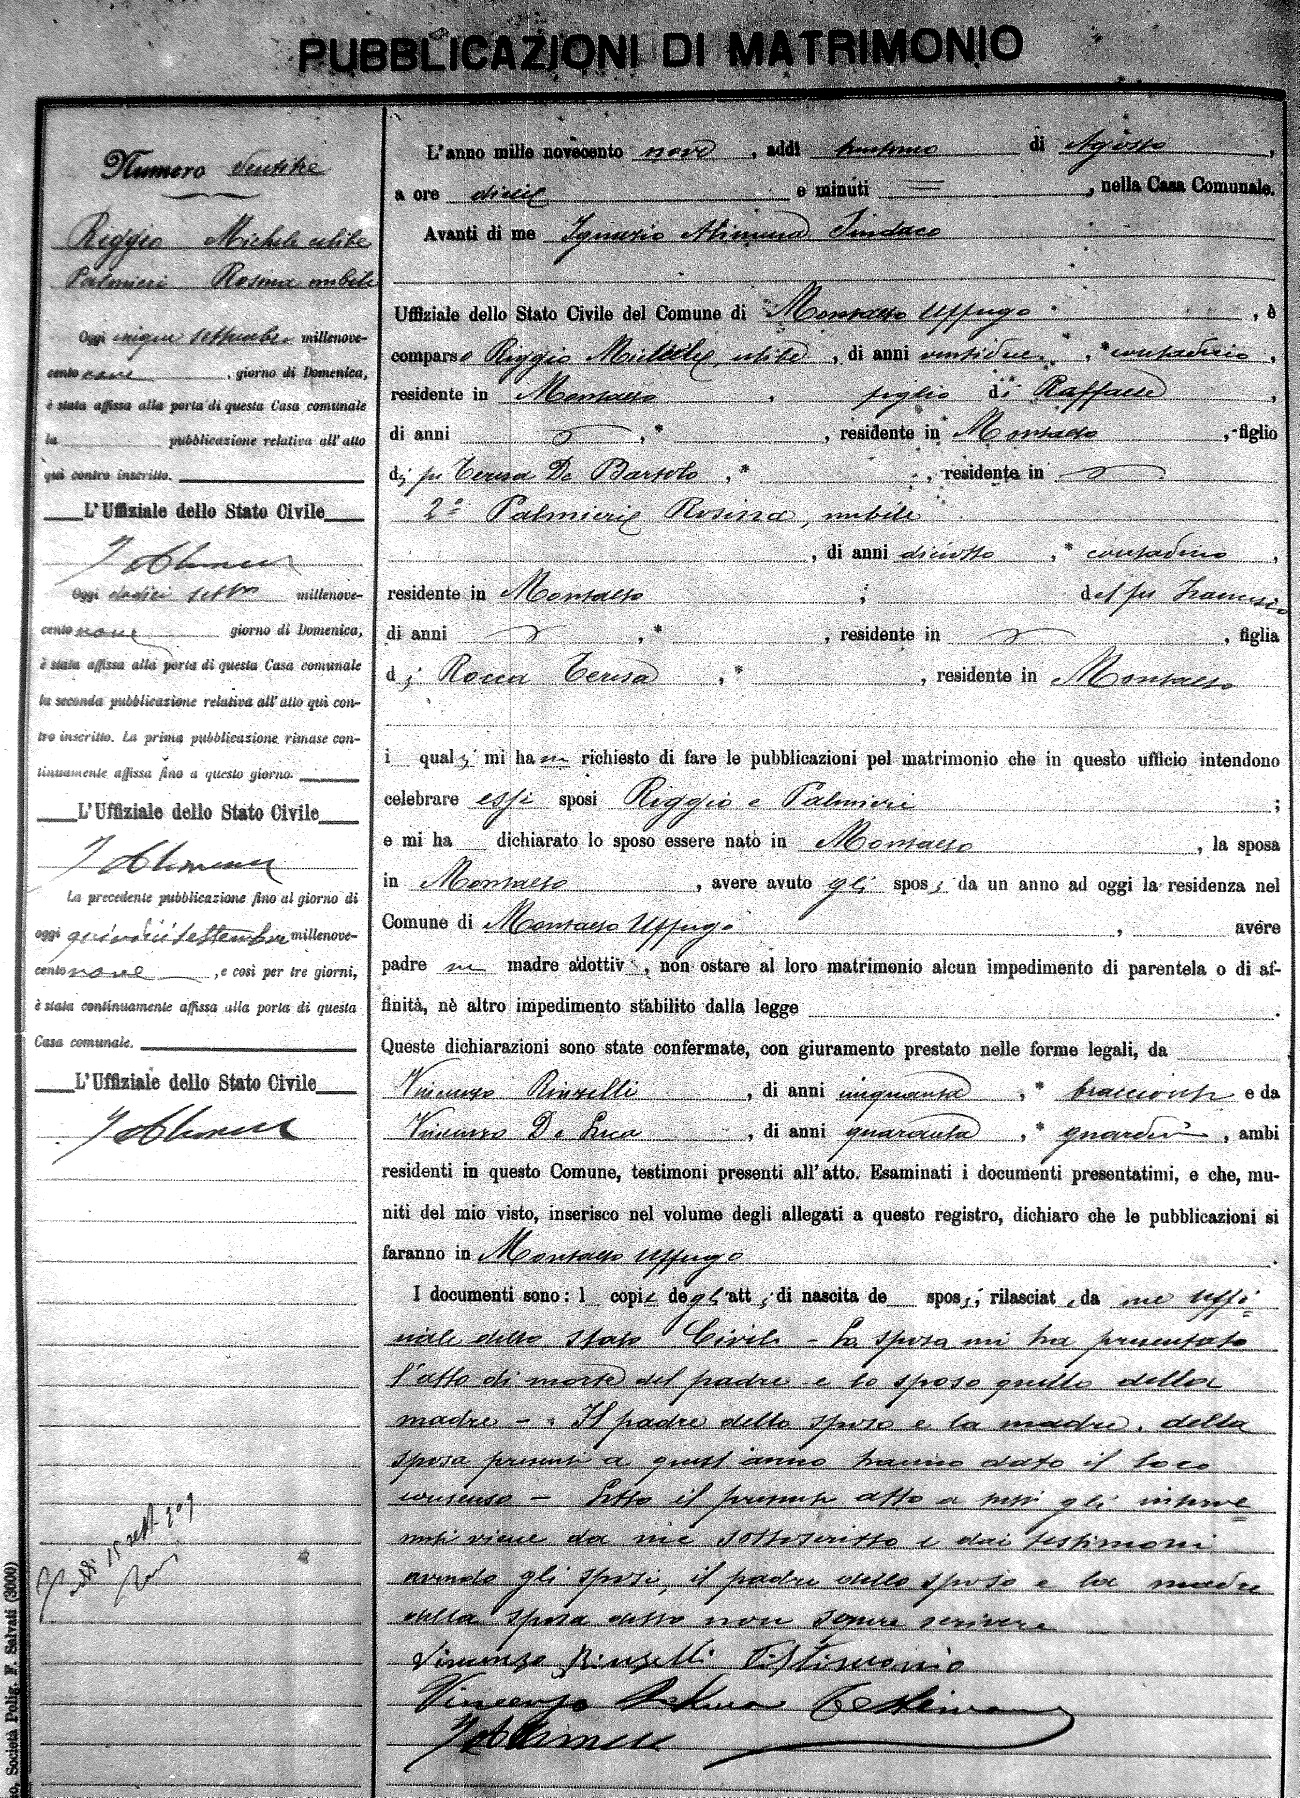 PUBBLICAZIONI DI MATRIMONIO
Numero Ventitre
Riggio Michele celibe
Palmieri Rosina nubile
Oggi cinque settembre millenove-
cento nove, giorno di Domenica,
è stata affissa alla porta di questa Casa comunale
la pubblicazione relativa all'atto
quì contro inscritto.
L'Uffiziale dello Stato Civile
Oggi dodici settbre millenove-
cento nove giorno di Domenica,
è stata affissa alla porta di questa Casa comunale
la seconda pubblicazione relativa all'atto quì con-
tro inscritto. La prima pubblicazione rimase con-
tinuamente affissa fino a questo giorno.
L'Uffiziale dello Stato Civile
La precedente pubblicazione fino al giorno di
oggi quindici settembre millenove-
cento nove, e così per tre giorni,
è stata continuamente affissa alla porta di questa
Casa comunale.
L'Uffiziale dello Stato Civile
15 sett 909
o, Società Polig. F. Salvati (3000)
L'anno mille novecento nove, addì trentuno di Agosto,
a ore dieci e minuti =, nella Casa Comunale.
Avanti di me Ignazio Alimena Sindaco
Uffiziale dello Stato Civile del Comune di Montalto Uffugo, è
comparso Riggio Michele, celibe, di anni ventidue, * contadino,
residente in Montalto, figlio di Raffaele,
di anni, *, residente in Montalto, figlio
di fu Teresa De Bartolo, *, residente in
2° Palmieri Rosina, nubile
, di anni diciotto, * contadina,
residente in Montalto, del fu Francesco
di anni, *, residente in, figlia
di Rocca Teresa, *, residente in Montalto
i quali mi han richiesto di fare le pubblicazioni pel matrimonio che in questo ufficio intendono
celebrare essi sposi Riggio e Palmieri;
e mi ha dichiarato lo sposo essere nato in Montalto, la sposa
in Montalto, avere avuto gli sposi da un anno ad oggi la residenza nel
Comune di Montalto Uffugo, avere
padre madre adottiv, non ostare al loro matrimonio alcun impedimento di parentela o di af-
finità, nè altro impedimento stabilito dalla legge.
Queste dichiarazioni sono state confermate, con giuramento prestato nelle forme legali, da
Vincenzo Rinzelli, di anni cinquanta, * bracciante e da
Vincenzo De Luca, di anni quaranta, * guardia, ambi
residenti in questo Comune, testimoni presenti all'atto. Esaminati i documenti presentatimi, e che, mu-
niti del mio visto, inserisco nel volume degli allegati a questo registro, dichiaro che le pubblicazioni si
faranno in Montalto Uffugo.
I documenti sono: le copie degli atti di nascita de sposi, rilasciate da me Uffi=
ciale dello Stato Civile - La sposa mi ha presentato
l'atto di morte del padre e lo sposo quello della
madre - Il padre dello sposo e la madre della
sposa presenti a quest'anno hanno dato il loro
consenso - Letto il presente atto a tutti gli interve=
nuti viene da me sottoscritto e dai testimoni
avendo gli sposi, il padre dello sposo e la madre
della sposa detto non sapere scrivere
Vincenzo Rinzelli Testimonio
Vincenzo De Luca Testimonio